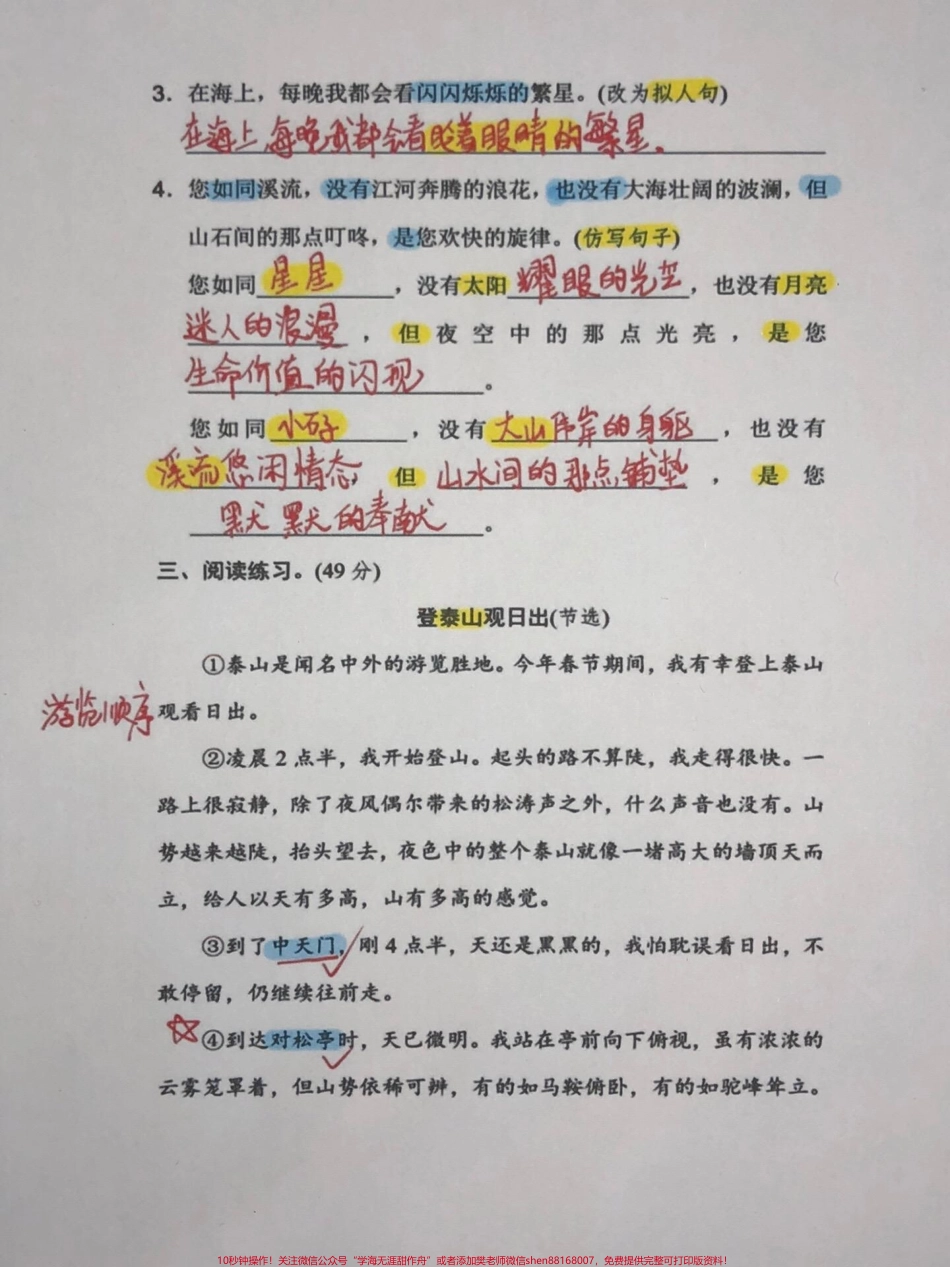 3. 在海上，每晚我都会看闪闪烁烁的繁星。(改为拟人句)
在海上,每晚我都会看眨着眼睛的繁星。
4. 您如同溪流，没有江河奔腾的浪花，也没有大海壮阔的波澜，但
山石间的那点叮咚，是您欢快的旋律。(仿写句子)
您如同星星，没有太阳耀眼的光芒，也没有月亮
迷人的浪漫，但夜空中的那点光亮，是您
生命价值的闪现。
您如同小石子，没有大山伟岸的身躯，也没有
溪流悠闲情态，但山水间的那点铺垫，是您
默默的奉献。
三、阅读练习。(49分)
登泰山观日出(节选)
①泰山是闻名中外的游览胜地。今年春节期间，我有幸登上泰山
游览顺序
观看日出。
②凌晨2点半，我开始登山。起头的路不算陡，我走得很快。一
路上很寂静，除了夜风偶尔带来的松涛声之外，什么声音也没有。山
势越来越陡，抬头望去，夜色中的整个泰山就像一堵高大的墙顶天而
立，给人以天有多高，山有多高的感觉。
③到了中天门，刚4点半，天还是黑黑的，我怕耽误看日出，不
敢停留，仍继续往前走。
④到达对松亭时，天已微明。我站在亭前向下俯视，虽有浓浓的
云雾笼罩着，但山势依稀可辨，有的如马鞍俯卧，有的如驼峰耸立。
10秒钟操作！关注微信公众号“学海无涯甜作舟”或者添加樊老师微信shen88168007，免费提供完整可打印版资料！